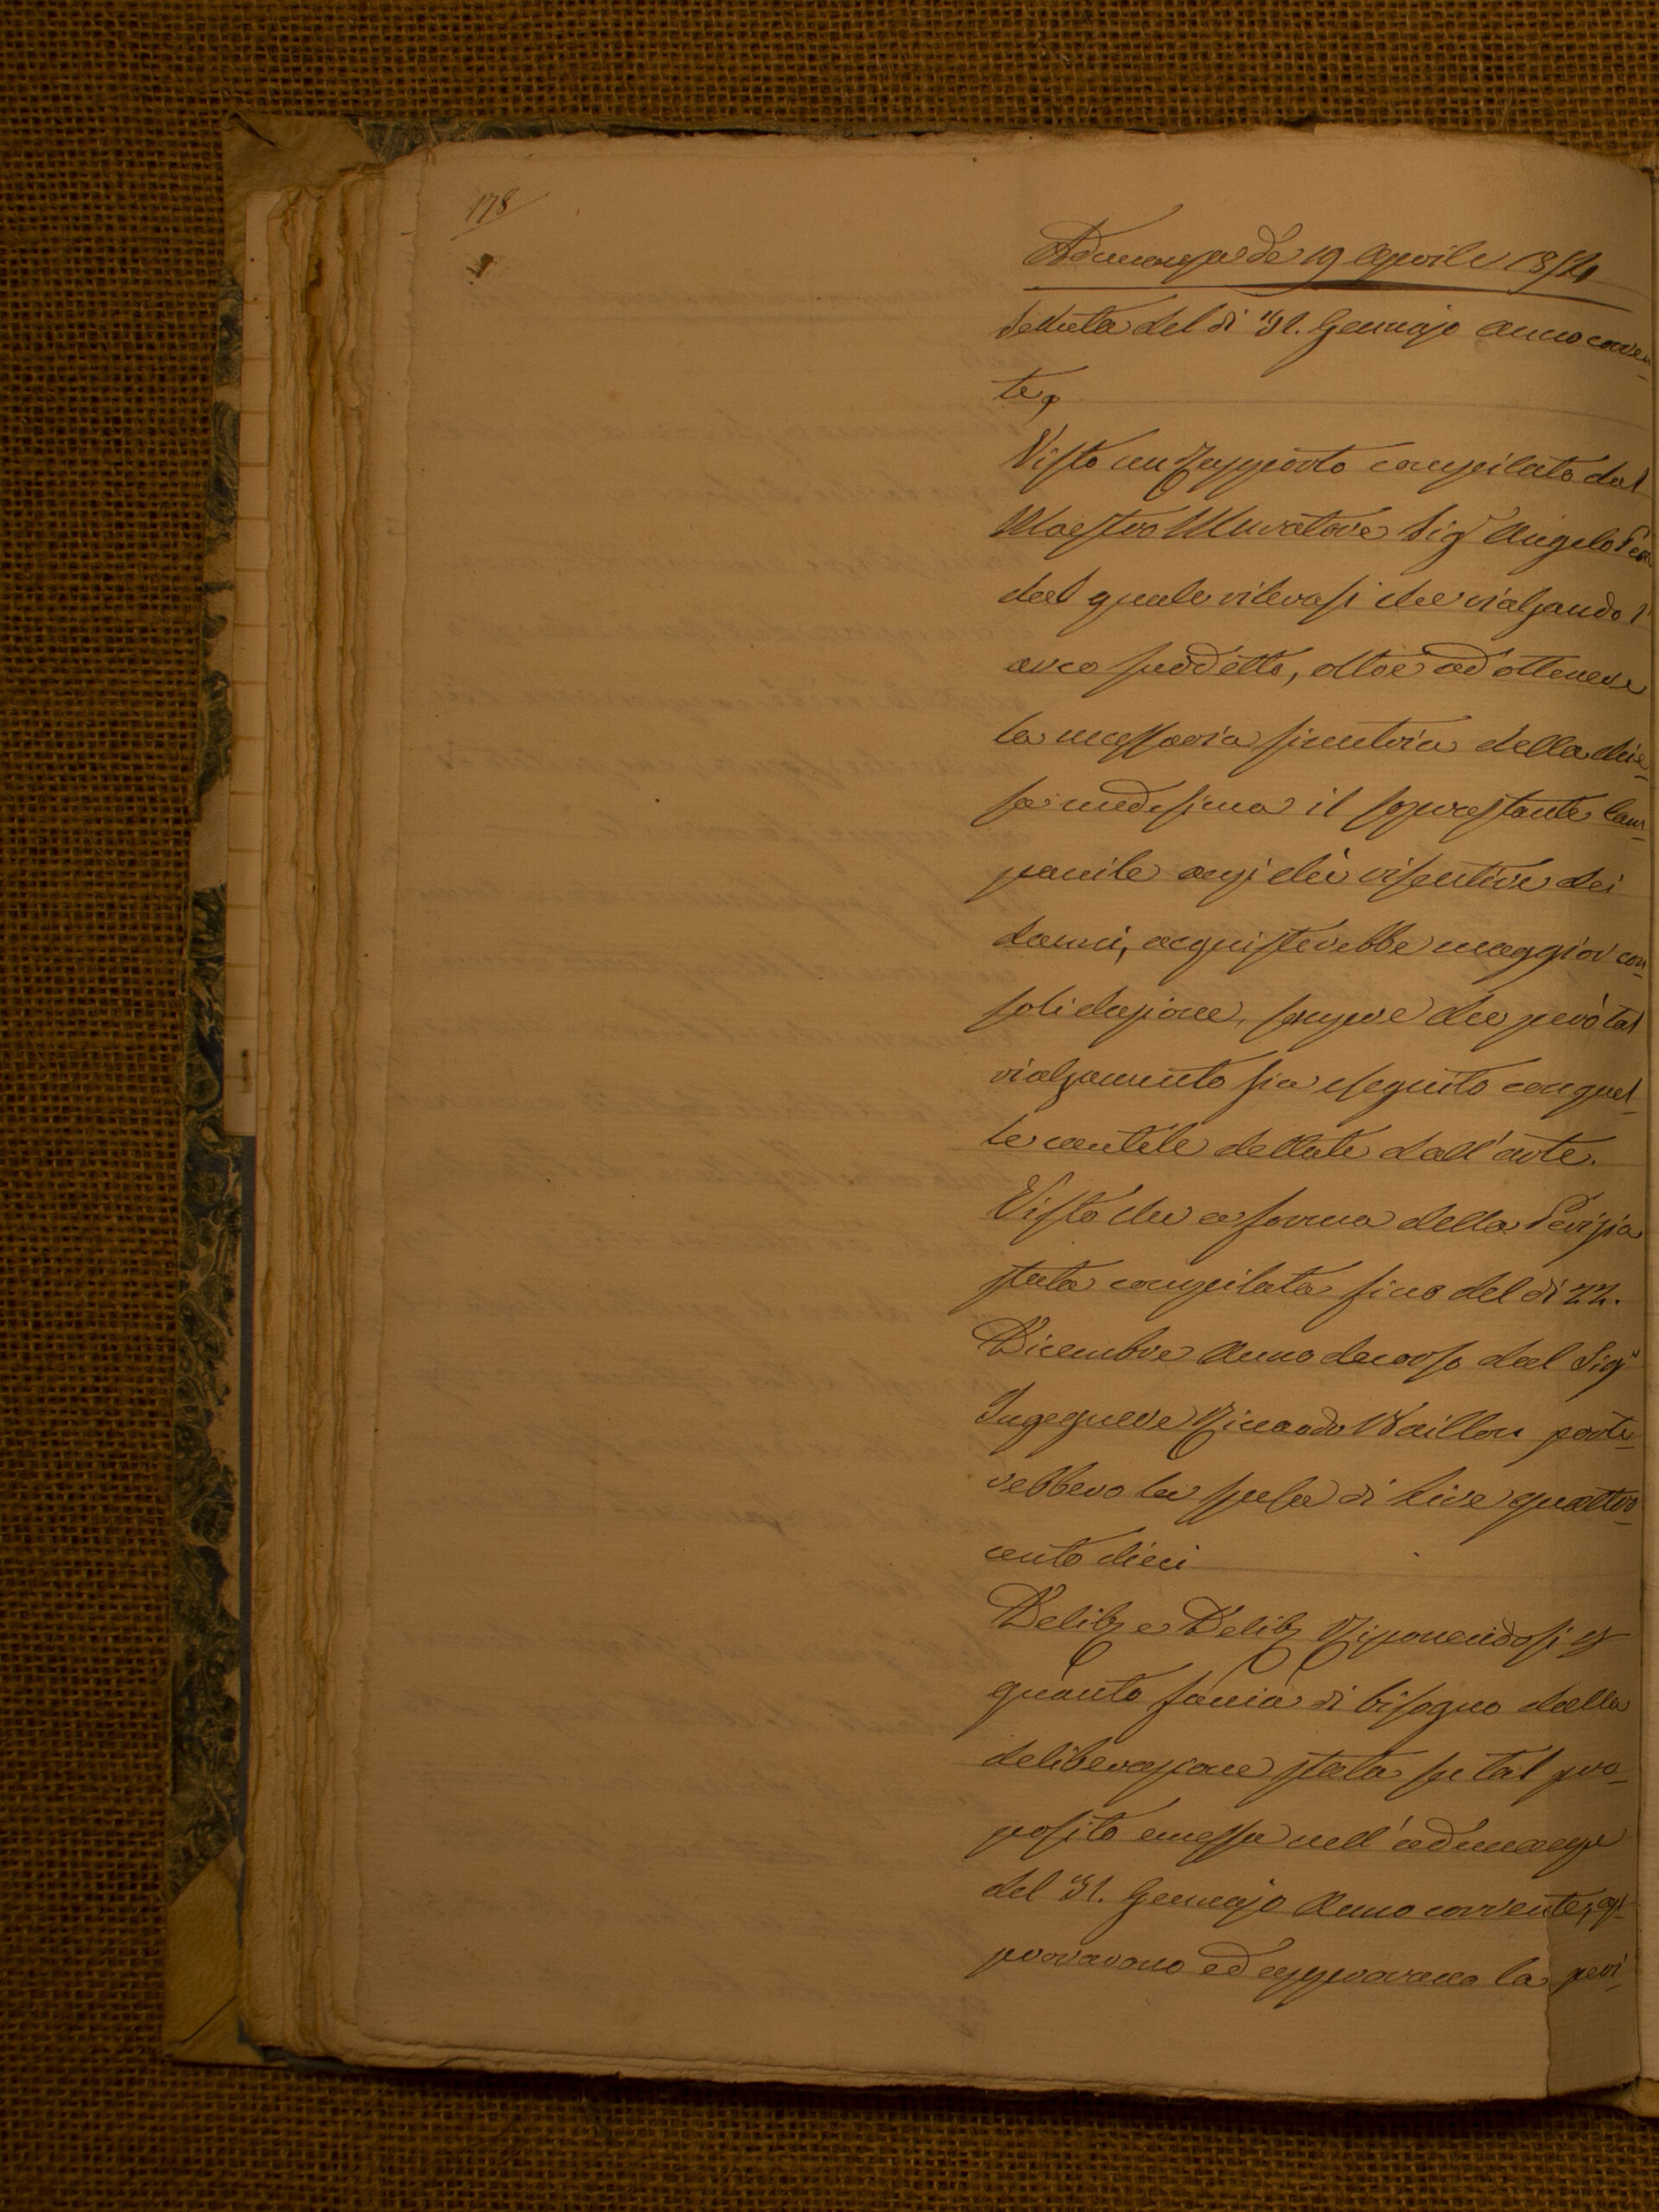 178
Adunanza de 19 Aprile 1854
Seduta del dì 31. Gennajo Anno corren-
te,
Visto un Rapporto compilato dal
Maestro Muratore Sig.r Angelo
dal quale rilevasi che rialzando l'
arco suddetto, oltre ad ottenere
la necessaria simetria della chie-
sa medesima il soprastante Cam-
panile anzi chè risentire dei
danni, acquisterebbe maggior con-
solidazione, sempre che però tal
rialzamento sia eseguito con quel-
le cautele dettate dall'arte.
Visto che a forma della Perizia
stata compilata fino del dì 22.
Dicembre Anno decorso dal Sig.r
Ingegnere Riccardo Waillon porte-
rebbero la spesa di Lire quattro-
cento dieci
Delib: e Delib: Riponendosi p
quanto faccia di bisogno dalla
deliberazione stata su tal pro-
posito emessa nell'adunanza
del 31. Gennajo Anno corrente, ap-
provarono ed approvano la peri-